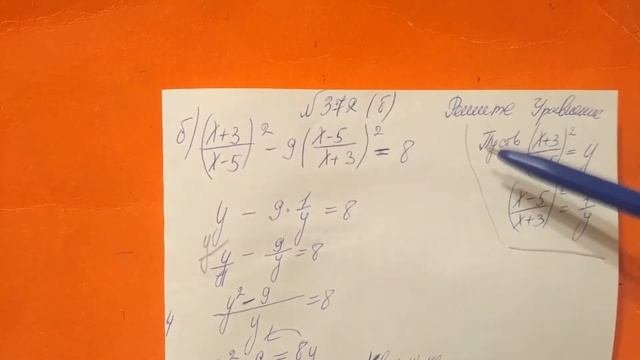 №372 (б)
Решите Уравнение
б) ((x+3)/(x-5))² - 9((x-5)/(x+3))² = 8
Пусть ((x+3)/(x-5))² = y
((x-5)/(x+3))² = 1/y
y - 9·1/y = 8
y/1 - 9/y = 8
(y² - 9)/y = 8
y² - 9 = 8y